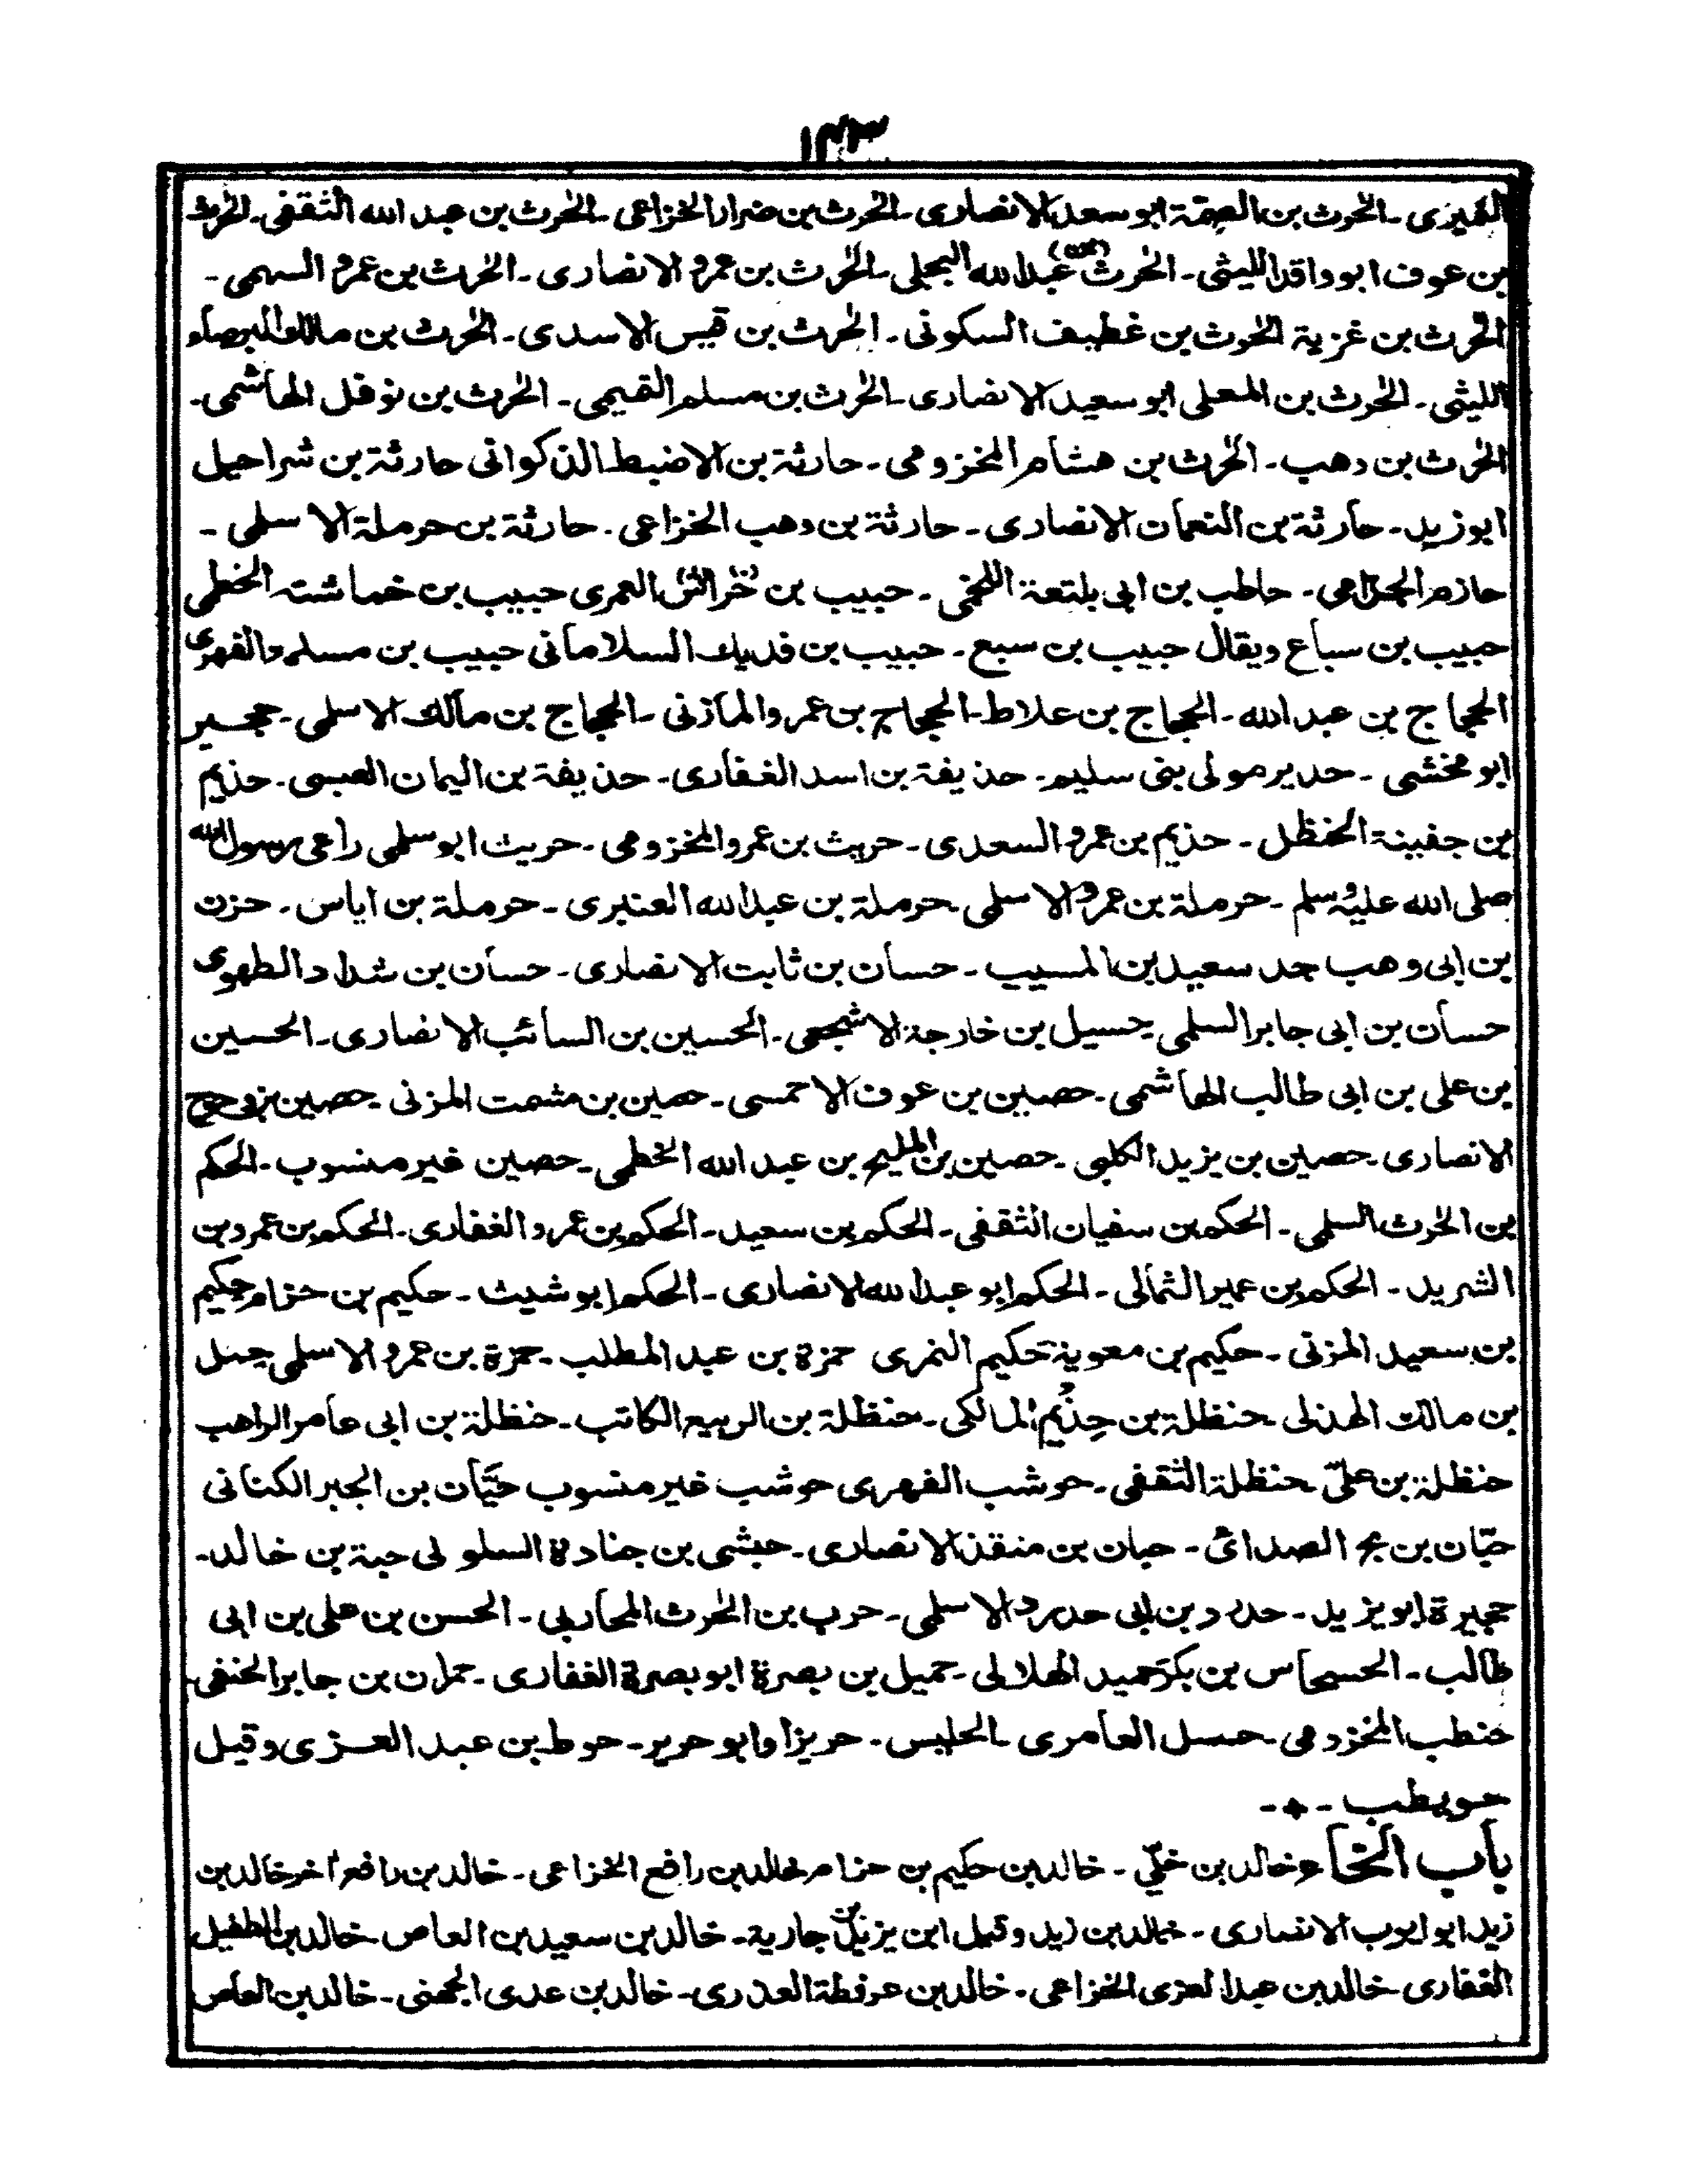 النميرى - الحٰرث بن الصمّة ابو سعد الانصارى - الحٰرث بن ضرار الخزاعى - الحٰرث بن عبد الله الثقفى - الحٰرث
بن عوف ابو واقد الليثى - الحٰرث بن عبد الله البجلى - الحٰرث بن عمرو الانصارى - الحٰرث بن عمرو السهمى -
الحٰرث بن غزية الحٰرث بن غطيف السكونى - الحٰرث بن قيس الاسدى - الحٰرث بن مالك البرصاء
الليثى - الحٰرث بن المعلى ابو سعيد الانصارى - الحٰرث بن مسلم التميمى - الحٰرث بن نوفل الهاشمى -
الحٰرث بن وهب - الحٰرث بن هشام المخزومى - حارثة بن الاضبط الذكوانى حارثة بن شراحيل
ابو زيد - حارثة بن النعمان الانصارى - حارثة بن وهب الخزاعى - حارثة بن حرملة الاسلمى -
حازم الجذامى - حاطب بن ابى بلتعة اللخمى - حبيب بن خراش العمرى حبيب بن خماشته الخطمى
حبيب بن سباع ويقال حبيب بن سبع - حبيب بن فديك السلامانى حبيب بن مسلمه الفهرى
الحجاج بن عبد الله - الحجاج بن علاط - الحجاج بن عمرو المازنى - الحجاج بن مالك الاسلمى - حجير
ابو مخشى - حدير مولى بنى سليم - حذيفة بن اسد الغفارى - حذيفة بن اليمان العبسى - حذيم
بن جفينة الحنظل - حذيم بن عمرو السعدى - حريث بن عمرو المخزومى - حريث ابو سلمى راعى رسول الله
صلى الله عليه وسلم - حرملة بن عمرو الاسلمى - حرملة بن عبد الله العنبرى - حرملة بن اياس - حزن
بن ابى وهب جد سعيد بن المسيب - حسان بن ثابت الانصارى - حسان بن شداد الطهوى
حسان بن ابى جابر السلمى - حسيل بن خارجة الاشجعى - الحسين بن السائب الانصارى - الحسين
بن على بن ابى طالب الهاشمى - حصين بن عوف الاحمسى - حصين بن مشمت المزنى - حصين بن وحوح
الانصارى - حصين بن يزيد الكلبى - حصين بن المليح بن عبد الله الخطمى - حصين غير منسوب - الحكم
بن الحٰرث السلمى - الحكم بن سفيان الثقفى - الحكم بن سعيد - الحكم بن عمرو الغفارى - الحكم بن عمرو بن
الشريد - الحكم بن عمير الثمالى - الحكم ابو عبد الله الانصارى - الحكم ابو شيث - حكيم بن حزام حكيم
بن سعيد المزنى - حكيم بن معوية حكيم النمرى حمزة بن عبد المطلب - حمزة بن عمرو الاسلمى حمل
بن مالك الهذلى - حنظلة بن حِذْيم المالكى - حنظلة بن الربيع الكاتب - حنظلة بن ابى عامر الراهب
حنظلة بن علىّ - حنظلة الثقفى - حوشب الفهرى حوشب غير منسوب حيّان بن الجبر الكنانى
حبّان بن بح الصدائى - حبان بن منقذ الانصارى - حبشى بن جنادة السلولى حبة بن خالد -
حجيرة ابو يزيد - حدرد بن ابى حدرد الاسلمى - حرب بن الحٰرث المحاربى - الحسن بن على بن ابى
طالب - الحسحاس بن بكر حميد الهلالى - حميل بن بصرة ابو بصرة الغفارى - حمران بن جابر الحنفى -
حنطب المخزومى - حسل العامرى - الحليس - حريزا وابو حرير - حوط بن عبد العزى وقيل
حويطب - * -
باب الخاء خالد بن خلّى - خالد بن حكيم بن حزام خالد بن رافع الخزاعى - خالد بن رافع اخر خالد بن
زيد ابو ايوب الانصارى - خالد بن زيد وقيل ابن يزيد بن جارية - خالد بن سعيد بن العاص - خالد بن الطفيل
الغفارى - خالد بن عبد العزى الخزاعى - خالد بن عرفطة العذرى - خالد بن عدى الجهنى - خالد بن العاص